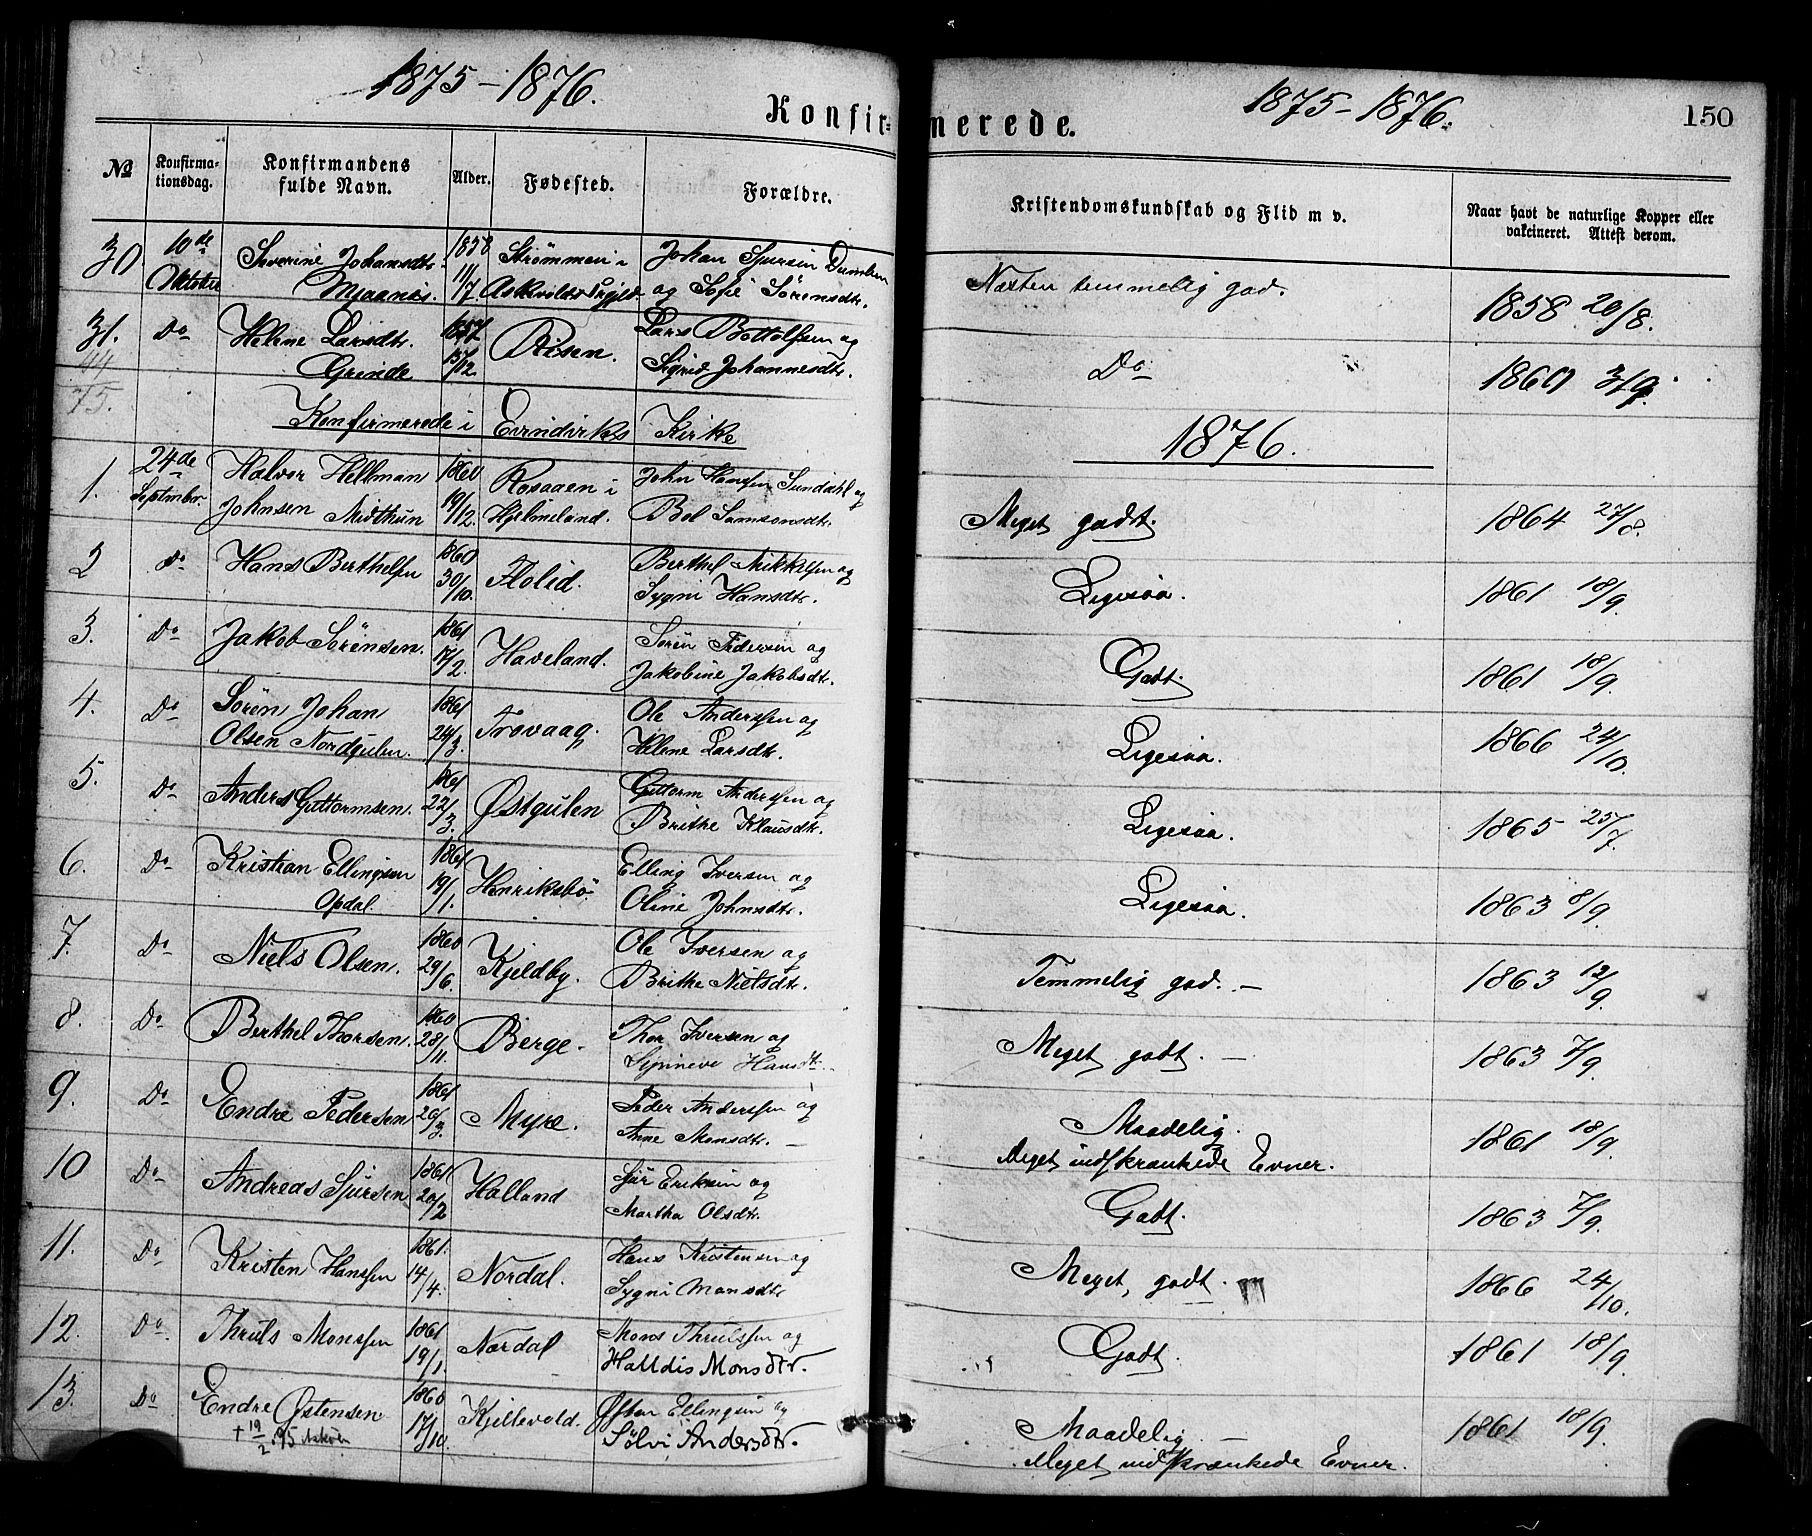 1875-1876.
1875-1876.
150
Konfirmerede.
No
Konfirma-
tionsdag.
Konfirmandens
fulde Navn.
Alder.
Fødested.
Forældre.
Kristendomskundskab og Flid m v.
Naar havt de naturlige Kopper eller
vakcineret. Attest derom.
30 10de Severine Johansdtr. 1858 Strømmen i Johan Sjursen
Oktober 11/7 og Sofie Sørensdtr.
Næsten temmelig god. 1858 20/8.
31. Do Helene Larsdtr. 1857 Risen. Lars Bottolfsen og
Grinde 15/12. Sigrid Johannesdtr.
Do 1860 3/9.
44
75.
Konfirmerede i Evindviks Kirke
1876.
1. 24de Halvor Hellman 1860 Rosaaen i John Hansen Sundahl og
September. Johnsen Midthun 19/12. Hjelmeland. Bol Samsonsdtr.
Meget godt. 1864 27/8.
2 Do Hans Berthelsen 1860 Flolid. Berthel Mikkelsen og
30/10. Sygni Hansdtr.
Ligesaa. 1861 18/9.
3. Do Jakob Sørensen. 1861 Haveland. Sørin Pedersen og
17/2. Jakobine Jakobsdtr.
Godt. 1861 18/9.
4. Do Søren Johan 1861 Trovaag. Ole Anderssen og
Olsen Nordgulen. 24/3. Helene Larsdtr.
Ligesaa. 1866 24/10.
5. Do Anders Guttormsen. 1861 Østgulen Guttorm Anderssen og
22/3. Brithe Klausdtr.
Ligesaa. 1865 25/7.
6. Do Kristian Ellingsen 1861 Henriksbø. Elling Iversen og
Opdal. 19/1. Oline Johnsdtr.
Ligesaa. 1863 8/9.
7. Do Niels Olsen. 1860 Kjeldby. Ole Iversen og
29/6. Brithe Nielsdtr.
Temmelig god. - 1863 12/9.
8. Do Berthel Thorsen. 1860 Berge. Thor Iversen og
28/11. Synneve Hansdtr.
Meget godt. - 1863 7/9.
9. Do Endre Pedersen 1861 Myre. Peder Anderssen og
20/3. Anne Monsdtr. -
Maadelig. 1861 18/9.
Meget indskrænkede Evner.
10 Do Andreas Sjursen 1861 Halland Sjur Eriksen og
20/2 Martha Olsdtr.
Godt. 1863 7/9.
11. Do Kristen Hanssen 1861. Nordal. Hans Kristensen og
14/4. Sygni Monsdtr
Meget godt. 1866 24/10.
12. Do Thruls Monssen 1861 Nordal Mons Thrulssen og
19/1. Halldis Monsdtr.
Godt. 1861 18/9.
13. Do Endre Østensen 1860 Kjellevold. Østen Ellingsen og
+ 19/2 95 17/10. Sølvi Andersdtr.
Maadelig. - 1861 18/9.
Meget indskrænkede Evner.